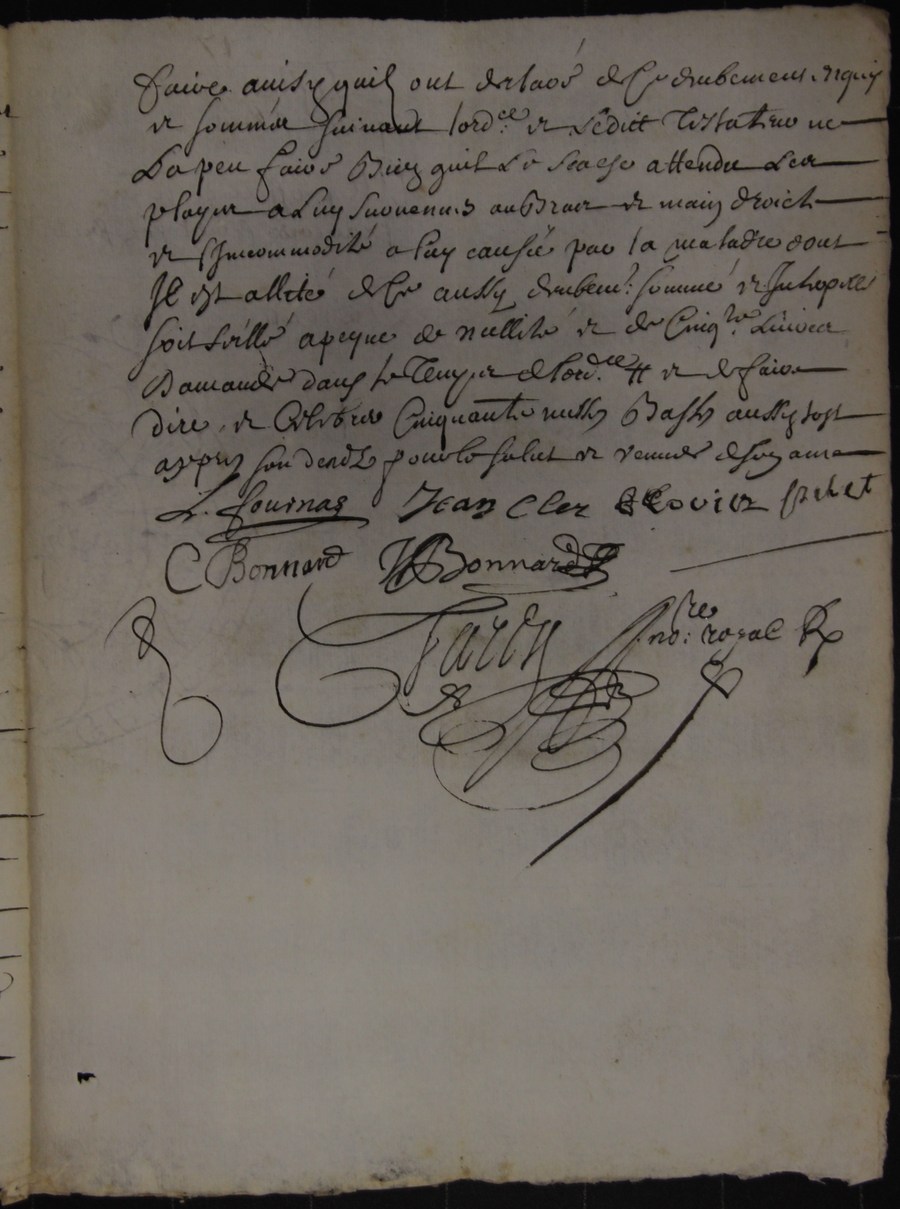 faire ainsy quil ont declaré de ce deubement enquis
et sommés suivant lord.ce et Ledict Testateur ne
La peu faire Bien quil Le scache attendu Les
playes a Luy survenues au Bras et main droicte
et Lincommodité a luy causée par la maladie dont
Il est allité de ce aussy deubem.t sommé et Interpellé
soit scéllé a peyne de nullité et de Cinq.te Livres
Damande dans le Temps de lord.ce # et de faire
dire et Celebrer Cinquante messes Basses aussy tost
appres son decedz pour le salut et remede de son ame
L. fournas Jean Cler
C Bonnard Bonnard
no.re royal